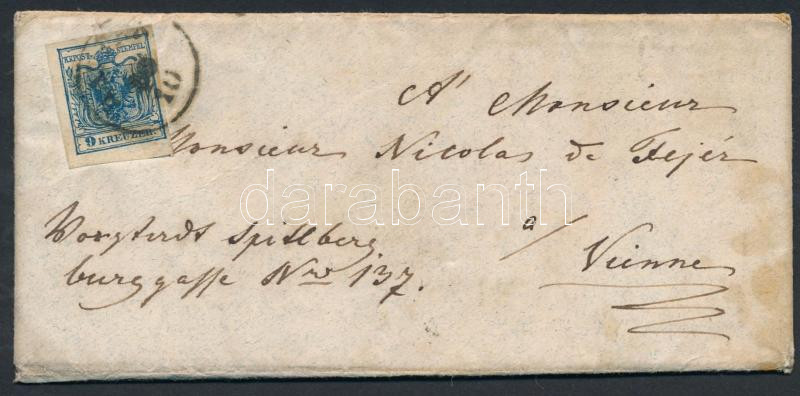 KKPOST-STEMPEL
9 KREUZER
10
A' Monsieur
Monsieur Nicolas de Fejér
a/ Vienne
Vorgtadt Spitlberg
burggasse Nro 137.
darabanth